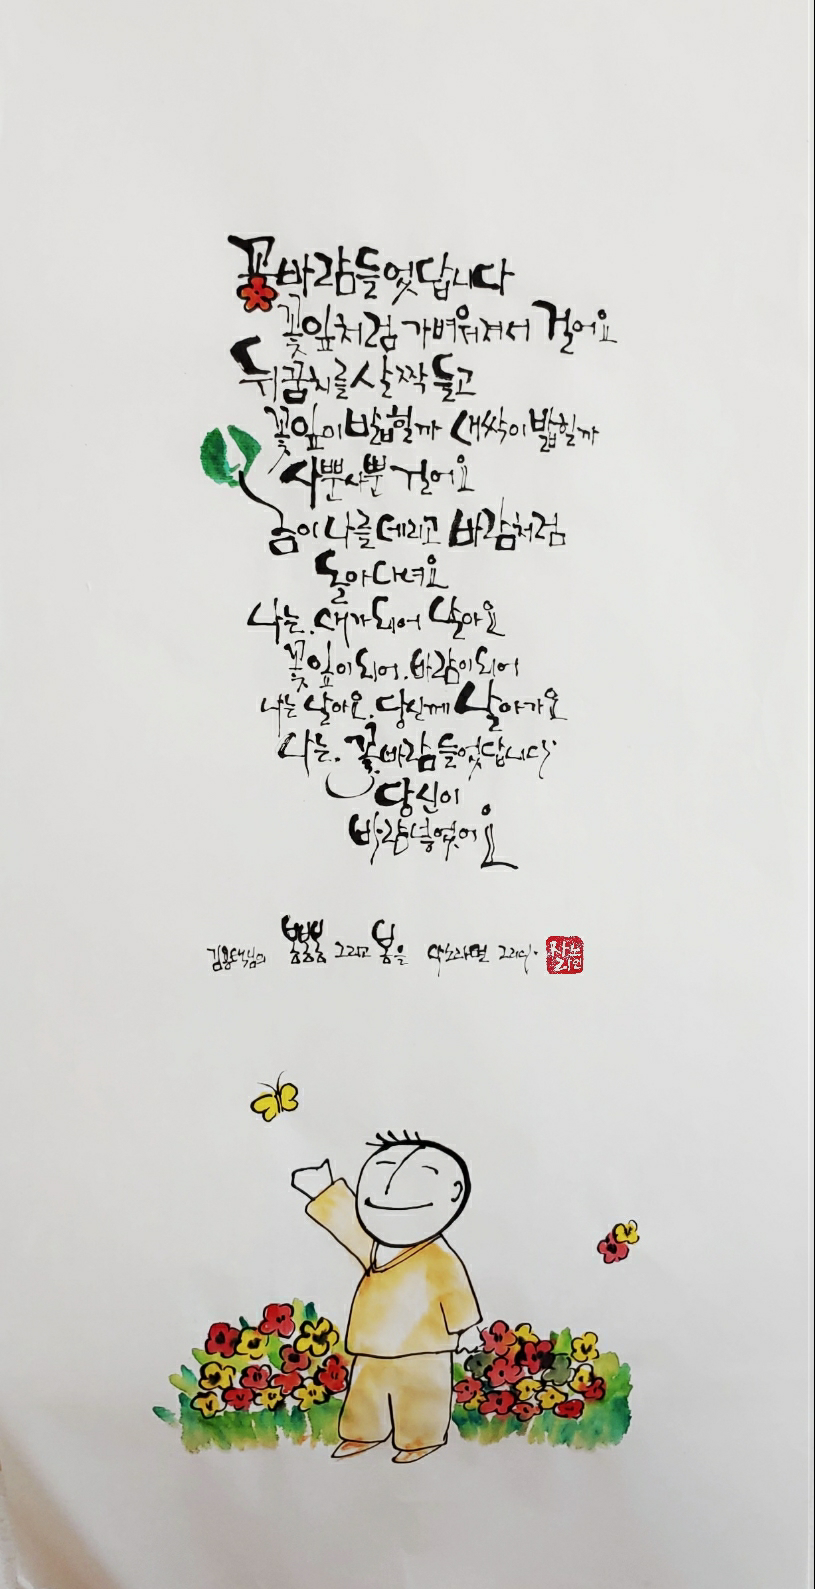 꽃바람들엇답니다
꽃잎처럼 가벼워져서 걸어요
뒤꿈치를 살짝 들고
꽃잎이 밟힐까 새싹이 밟힐까
사뿐사뿐 걸어요
봄이 나를 데리고 바람처럼
돌아다녀요
나는, 새가 되어 날아요
꽃잎이 되어, 바람이 되어
나는 날아요, 당신께 날아가요
나는, 꽃바람들엇답니다
당신이
바람넣엇어요
김용택님의 뽕뽕뽕 그리고 봄을 그리다